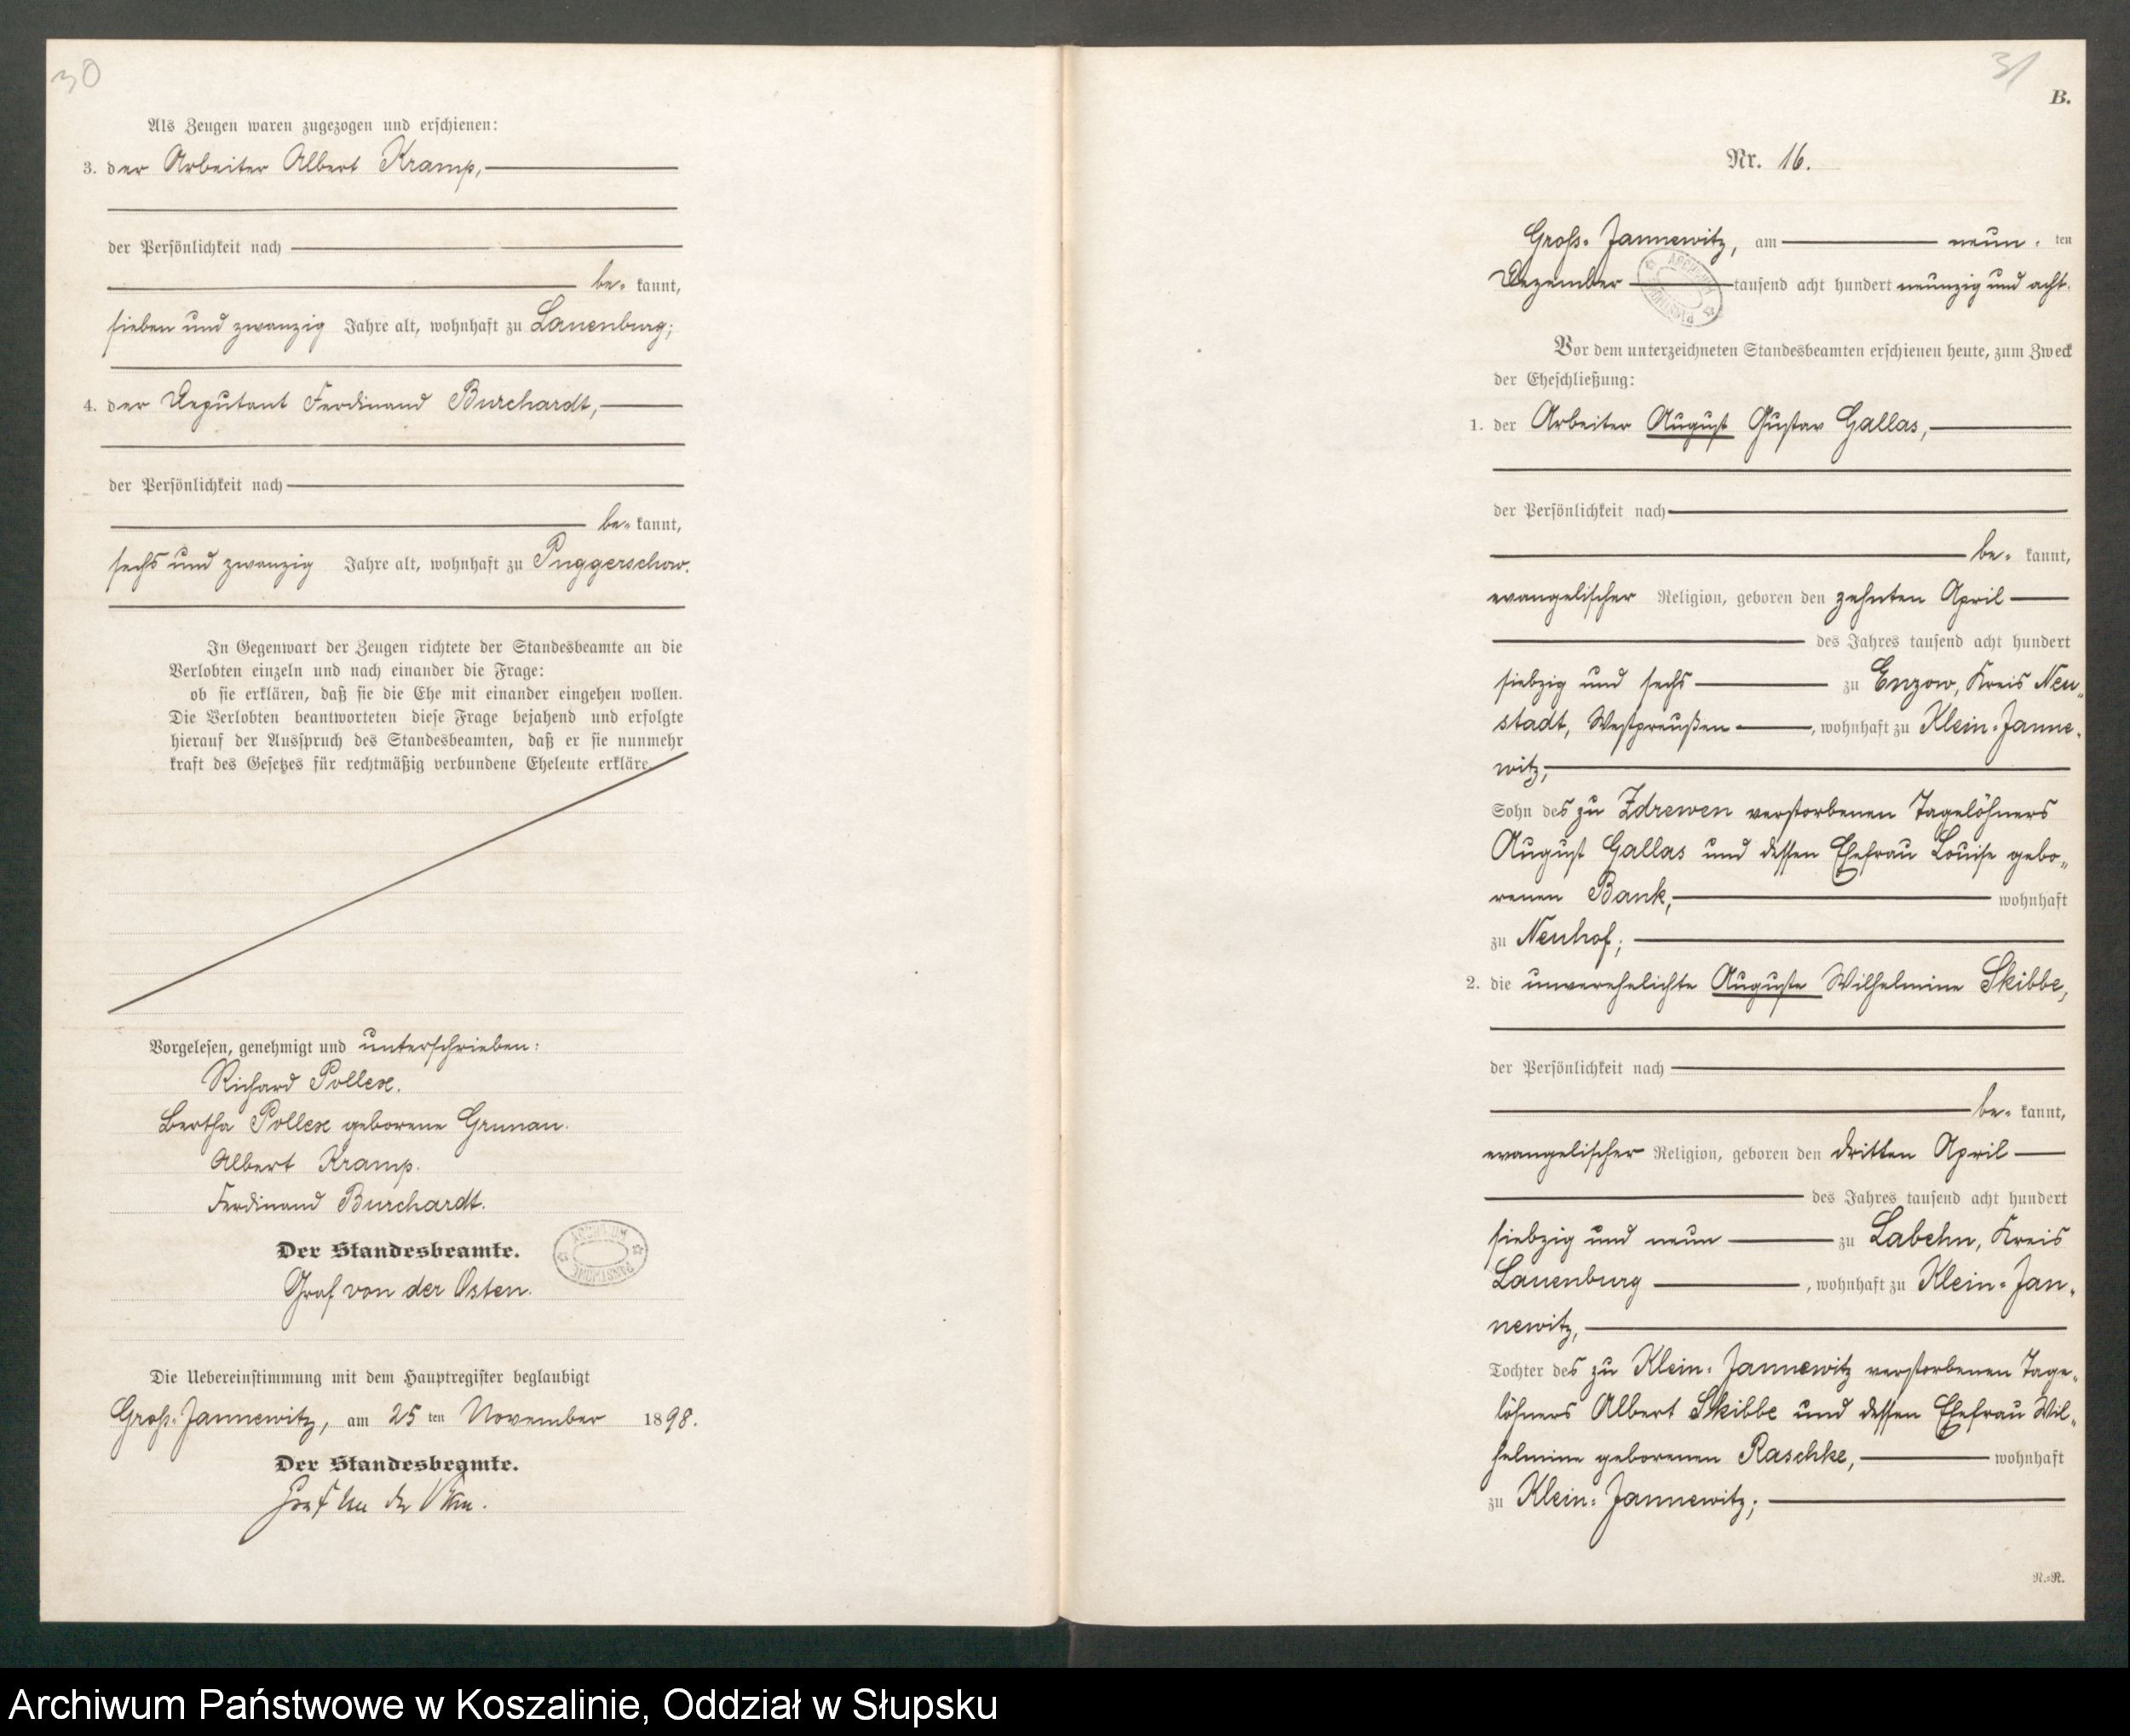 30
Als Zeugen waren zugezogen und erschienen:
3. der Arbeiter Albert Kramp,
der Persönlichkeit nach
be- kannt,
sieben und zwanzig Jahre alt, wohnhaft zu Lauenburg;
4. der Deputant Ferdinand Burchardt,
der Persönlichkeit nach
be- kannt,
sechs und zwanzig Jahre alt, wohnhaft zu Puggerschow.
In Gegenwart der Zeugen richtete der Standesbeamte an die
Verlobten einzeln und nach einander die Frage:
ob sie erklären, daß sie die Ehe mit einander eingehen wollen.
Die Verlobten beantworteten diese Frage bejahend und erfolgte
hierauf der Ausspruch des Standesbeamten, daß er sie nunmehr
kraft des Gesetzes für rechtmäßig verbundene Eheleute erkläre.
Vorgelesen, genehmigt und unterschrieben:
Richard Pollex.
Bertha Pollex geborene Grunau.
Albert Kramp.
Ferdinand Burchardt.
Der Standesbeamte.
Graf von der Osten.
ARCHIWUM PAŃSTWOWE
Die Uebereinstimmung mit dem Hauptregister beglaubigt
Groß-Jannewitz, am 25 ten November 1898.
Der Standesbeamte.
Graf von der Osten.
31
B.
Nr. 16.
Groß-Jannewitz, am neun- ten
Dezember tausend acht hundert neunzig und acht.
ARCHIWUM PAŃSTWOWE
Vor dem unterzeichneten Standesbeamten erschienen heute, zum Zweck
der Eheschließung:
1. der Arbeiter August Gustav Gallas,
der Persönlichkeit nach
be- kannt,
evangelischer Religion, geboren den zehnten April
des Jahres tausend acht hundert
siebzig und sechs zu Enzow, Kreis Neu-
stadt, Westpreußen, wohnhaft zu Klein-Janne-
witz,
Sohn des zu Zdrewen verstorbenen Tagelöhners
August Gallas und dessen Ehefrau Louise gebo-
renen Bank, wohnhaft
zu Neuhof;
2. die unverehelichte Auguste Wilhelmine Skibbe,
der Persönlichkeit nach
be- kannt,
evangelischer Religion, geboren den dritten April
des Jahres tausend acht hundert
siebzig und neun zu Labehn, Kreis
Lauenburg, wohnhaft zu Klein-Jan-
newitz,
Tochter des zu Klein-Jannewitz verstorbenen Tage-
löhners Albert Skibbe und dessen Ehefrau Wil-
helmine geborenen Raschke, wohnhaft
zu Klein-Jannewitz;
R.-R.
Archiwum Państwowe w Koszalinie, Oddział w Słupsku